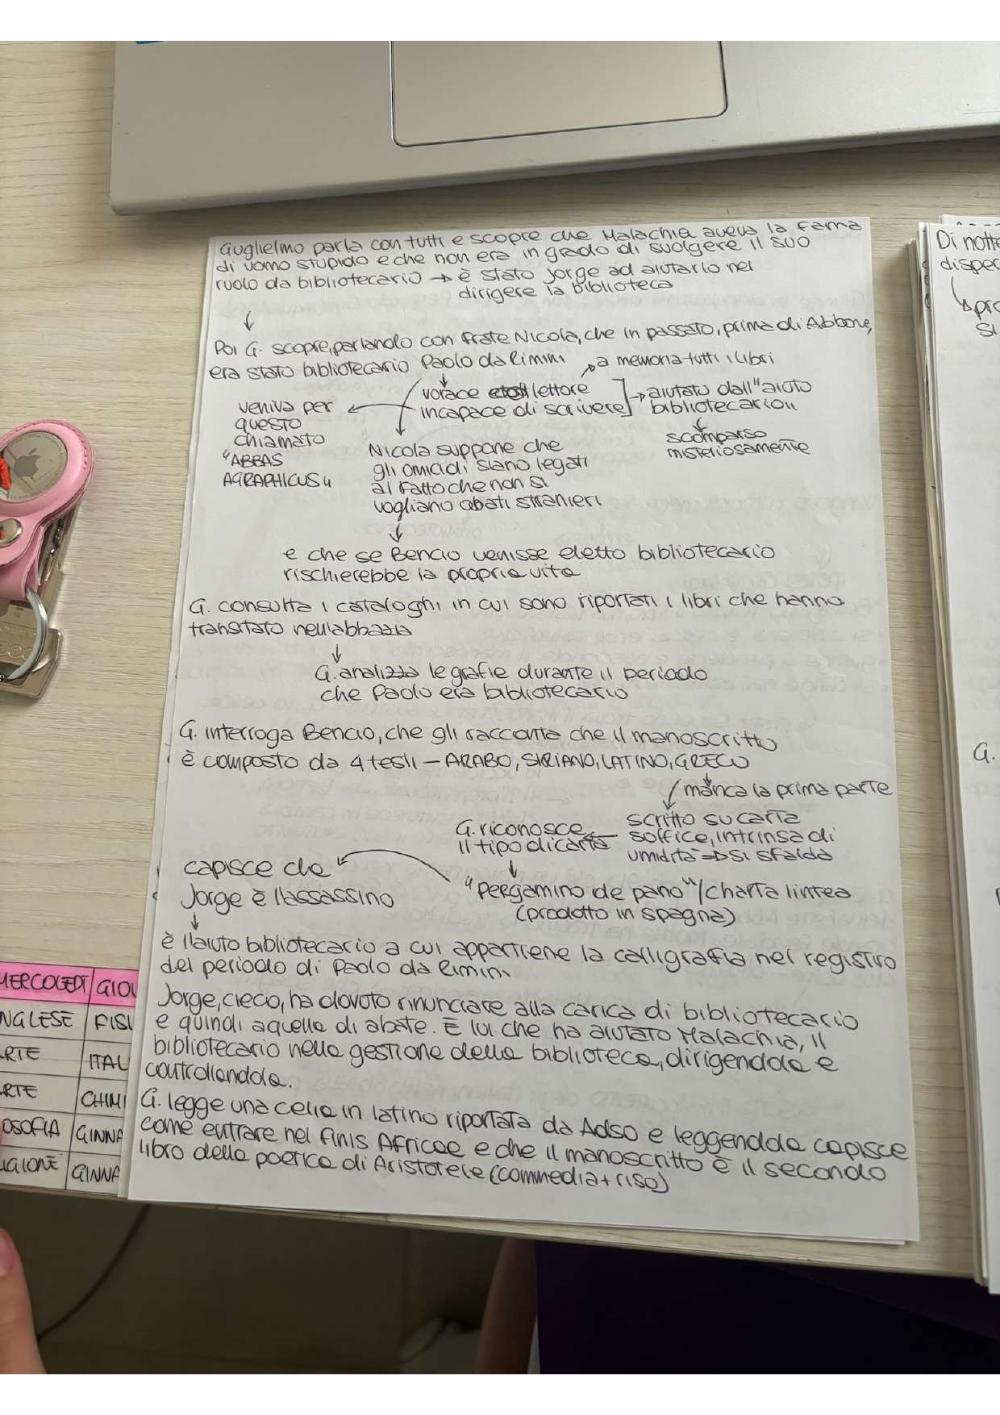 Guglielmo parla con tutti e scopre che Malachia aveva la fama
di uomo stupido e che non era in grado di svolgere il suo
ruolo da bibliotecario → è stato Jorge ad aiutarlo nel
dirigere la biblioteca
↓
Poi G. scopre, parlando con frate Nicola, che in passato, prima di Abbone,
era stato bibliotecario Paolo da Rimini
a memoria tutti i libri
vorace lettore
incapace di scrivere] → aiutato dall'"aiuto
bibliotecario"
↓
scomparso
misteriosamente
veniva per
questo
chiamato
"ABBAS
AGRAPHICUS"
Nicola suppone che
gli omicidi siano legati
al fatto che non si
vogliano abati stranieri
↓
e che se Bencio venisse eletto bibliotecario
rischierebbe la propria vita
G. consulta i cataloghi in cui sono riportati i libri che hanno
transitato nell'abbazia
↓
G. analizza le grafie durante il periodo
che Paolo era bibliotecario
G. interroga Bencio, che gli racconta che il manoscritto
è composto da 4 testi - ARABO, SIRIANO, LATINO, GRECO
↓
manca la prima parte
scritto su carta
soffice, intrinsa di
umidità ⇒ si sfalda
G. riconosce ←
il tipo di carta
↓
"pergamino de pano"/charta lintea
(prodotto in Spagna)
capisce che
Jorge è l'assassino
↓
è l'aiuto bibliotecario a cui appartiene la calligrafia nel registro
del periodo di Paolo da Rimini
Jorge, cieco, ha dovuto rinunciare alla carica di bibliotecario
e quindi a quella di abate. È lui che ha aiutato Malachia, il
bibliotecario nella gestione della biblioteca, dirigendola e
controllandola.
G. legge una celia in latino riportata da Adso e leggendola capisce
come entrare nel finis Africae e che il manoscritto è il secondo
libro della poetica di Aristotele (commedia + riso)
Di notte
disper
G.
MERCOLEDÌ GIOV
NGLESE FISI
RTE ITAL
RTE CHIMI
OSOFIA GINNA
IGIONE GINNA